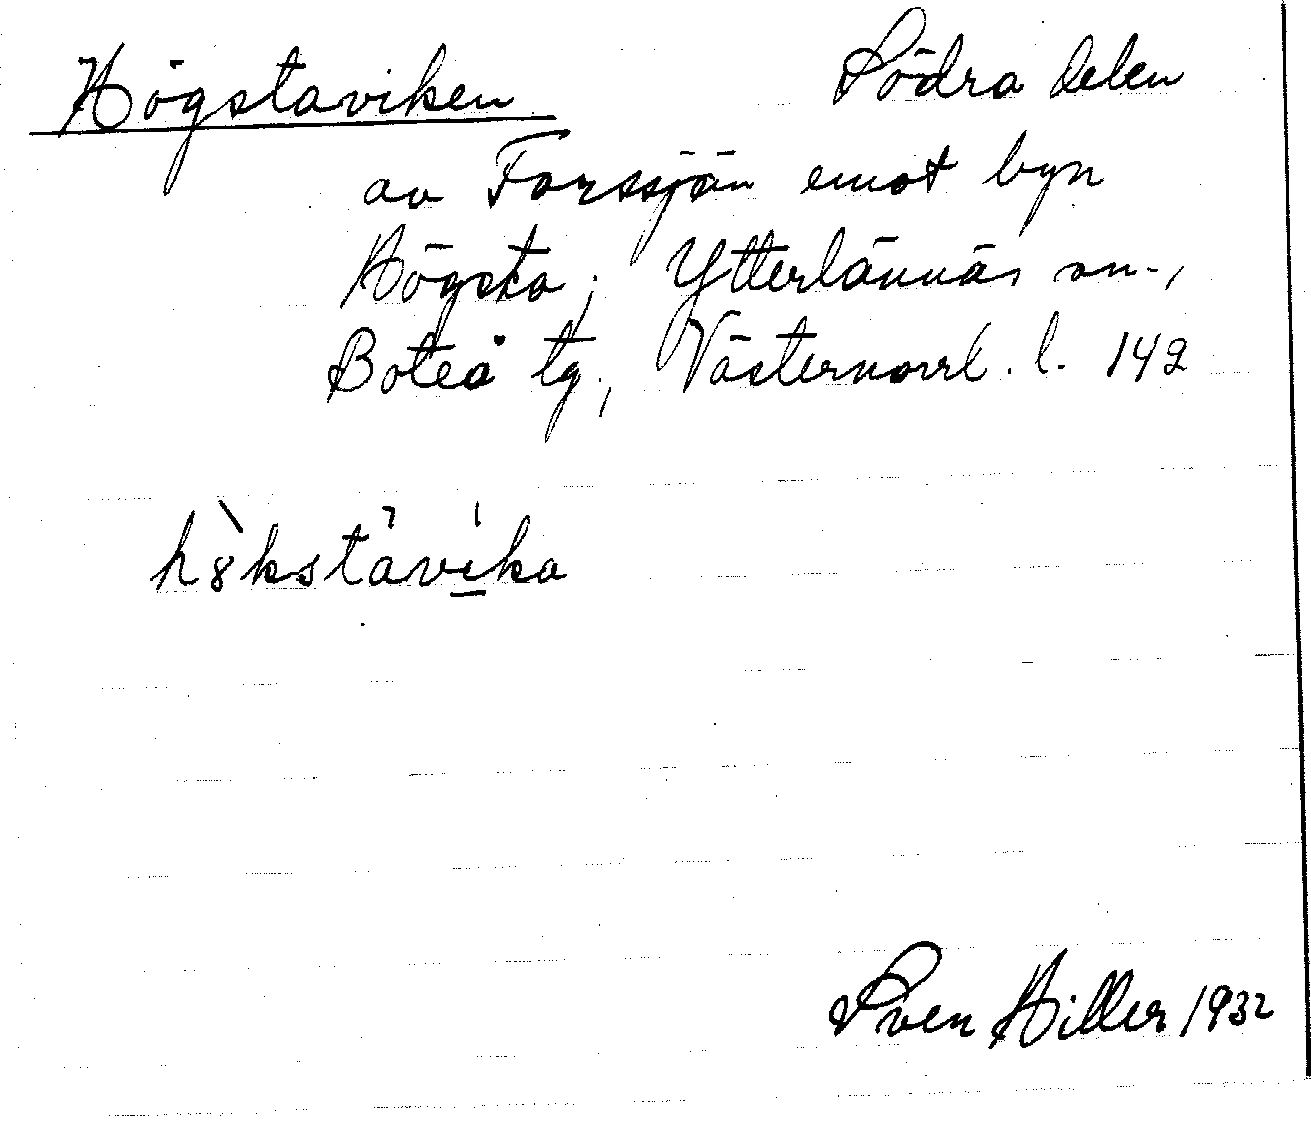 Högstaviken Södra delen
av Forssjön emot byn
Högsta; Ytterlännäs sn.,
Boteå tg., Västernorrl. l. 142
hòkstavika
Sven Hiller 1932